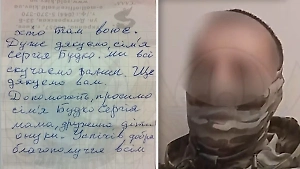 хто там воює.
Дуже дякуємо, сім'я
Сергія Будко. ми всі
скучаємо
дякуємо вам.
Допоможіть, просимо
сім'я Будко Сергія
мама, дружина діти
онуки. Успіхів добра
благополуччя всім